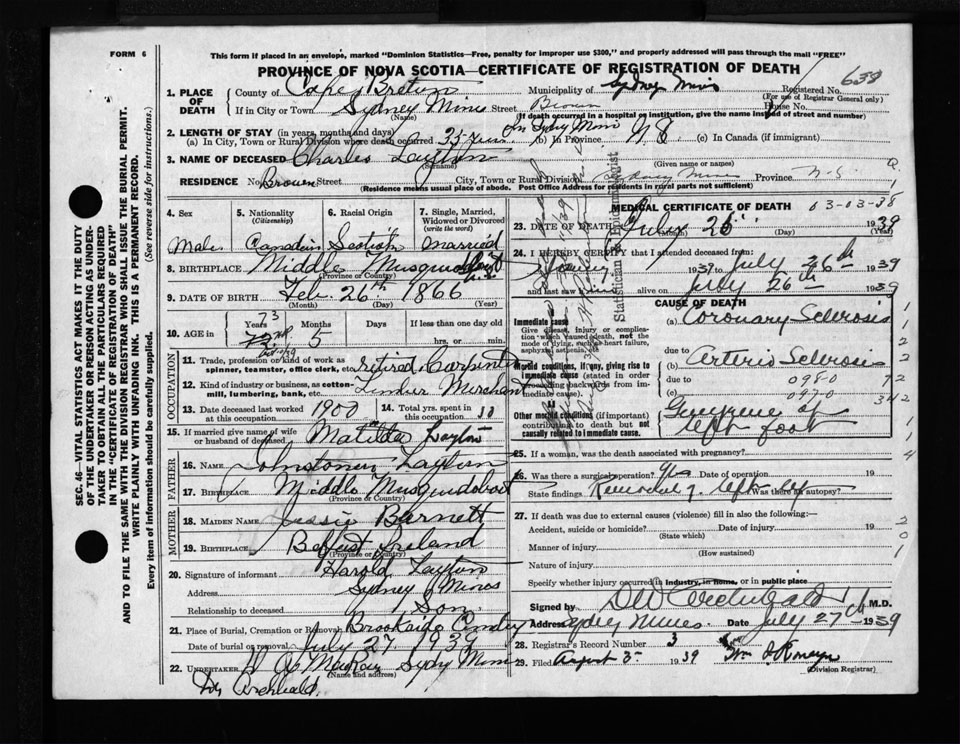 FORM 6
This form if placed in an envelope, marked "Dominion Statistics—Free, penalty for improper use $300," and properly addressed will pass through the mail "FREE"
PROVINCE OF NOVA SCOTIA—CERTIFICATE OF REGISTRATION OF DEATH
638
1. PLACE OF DEATH
County of Cape Breton Municipality of Sydney Mines Registered No.
(For use of Registrar General only)
If in City or Town Sydney Mines Street Brown House No.
(Name) (If death occurred in a hospital or institution, give the name instead of street and number)
2. LENGTH OF STAY (in years, months and days)
(a) In City, Town or Rural Division where death occurred 35 yrs. In Sydney Mines (b) In Province N S (c) In Canada (if immigrant)
3. NAME OF DECEASED Charles Layton
(Surname) (Given name or names)
RESIDENCE No. Brown Street City, Town or Rural Division Sydney Mines Province N.S.
(Residence means usual place of abode. Post Office Address for residents in rural parts not sufficient)
4. Sex
Male
5. Nationality (Citizenship)
Canadian
6. Racial Origin
Scotish
7. Single, Married, Widowed or Divorced (write the word)
Married
8. BIRTHPLACE Middle Musquodoboit
(Province or Country)
9. DATE OF BIRTH Feb. 26th 1866
(Month) (Day) (Year)
10. AGE in Years Months Days If less than one day old
73 5 hrs. or min.
OCCUPATION
11. Trade, profession or kind of work as spinner, teamster, office clerk, etc. retired Carpenter
12. Kind of industry or business, as cotton-mill, lumbering, bank, etc. Limber Merchant
13. Date deceased last worked at this occupation 1900
14. Total yrs. spent in this occupation
15. If married give name of wife or husband of deceased Matilda Layton
FATHER
16. NAME Layton
17. BIRTHPLACE Middle Musquodoboit
(Province or Country)
MOTHER
18. MAIDEN NAME Jessie Barnett
19. BIRTHPLACE Belfast Ireland
(Province or Country)
20. Signature of informant Harold Layton
Address Sydney Mines
Relationship to deceased Son
21. Place of Burial, Cremation or Removal Brookside
Date of burial or removal July 27 1939
22. UNDERTAKER Sydney Mines
(Name and address)
Dr Archibald
MEDICAL CERTIFICATE OF DEATH
03-03-38
23. DATE OF DEATH July 26 1939
(Month) (Day) (Year)
24. I HEREBY CERTIFY that I attended deceased from:
1939 to July 26th 1939
and last saw alive on July 26th 1939
CAUSE OF DEATH
Immediate cause
Give disease, injury or complication which caused death, not the mode of dying, such as heart failure, asphyxia, asthenia, etc.
(a) Coronary Sclerosis
due to
Morbid conditions, if any, giving rise to immediate cause (stated in order proceeding backwards from immediate cause).
Arterio Sclerosis
due to
0980
(c) 0970
Other morbid conditions (if important) contributing to death but not causally related to immediate cause.
Gangrene of left foot
25. If a woman, was the death associated with pregnancy?
26. Was there a surgical operation? Yes Date of operation 19
State findings Removal of left leg Was there an autopsy?
27. If death was due to external causes (violence) fill in also the following:—
Accident, suicide or homicide? Date of injury 19
(State which)
Manner of injury
(How sustained)
Nature of injury
Specify whether injury occurred in industry, in home, or in public place
Signed by D W Archibald M.D.
Address Sydney Mines. Date July 27th 1939
28. Registrar's Record Number 3
29. Filed August 5 1939
(Division Registrar)
SEC. 46—VITAL STATISTICS ACT MAKES IT THE DUTY OF THE UNDERTAKER OR PERSON ACTING AS UNDERTAKER TO OBTAIN ALL THE PARTICULARS REQUIRED IN THE "CERTIFICATE OF REGISTRATION OF DEATH" AND TO FILE THE SAME WITH THE DIVISION REGISTRAR WHO SHALL ISSUE THE BURIAL PERMIT.
WRITE PLAINLY WITH UNFADING INK. THIS IS A PERMANENT RECORD.
Every item of information should be carefully supplied. (See reverse side for instructions.)